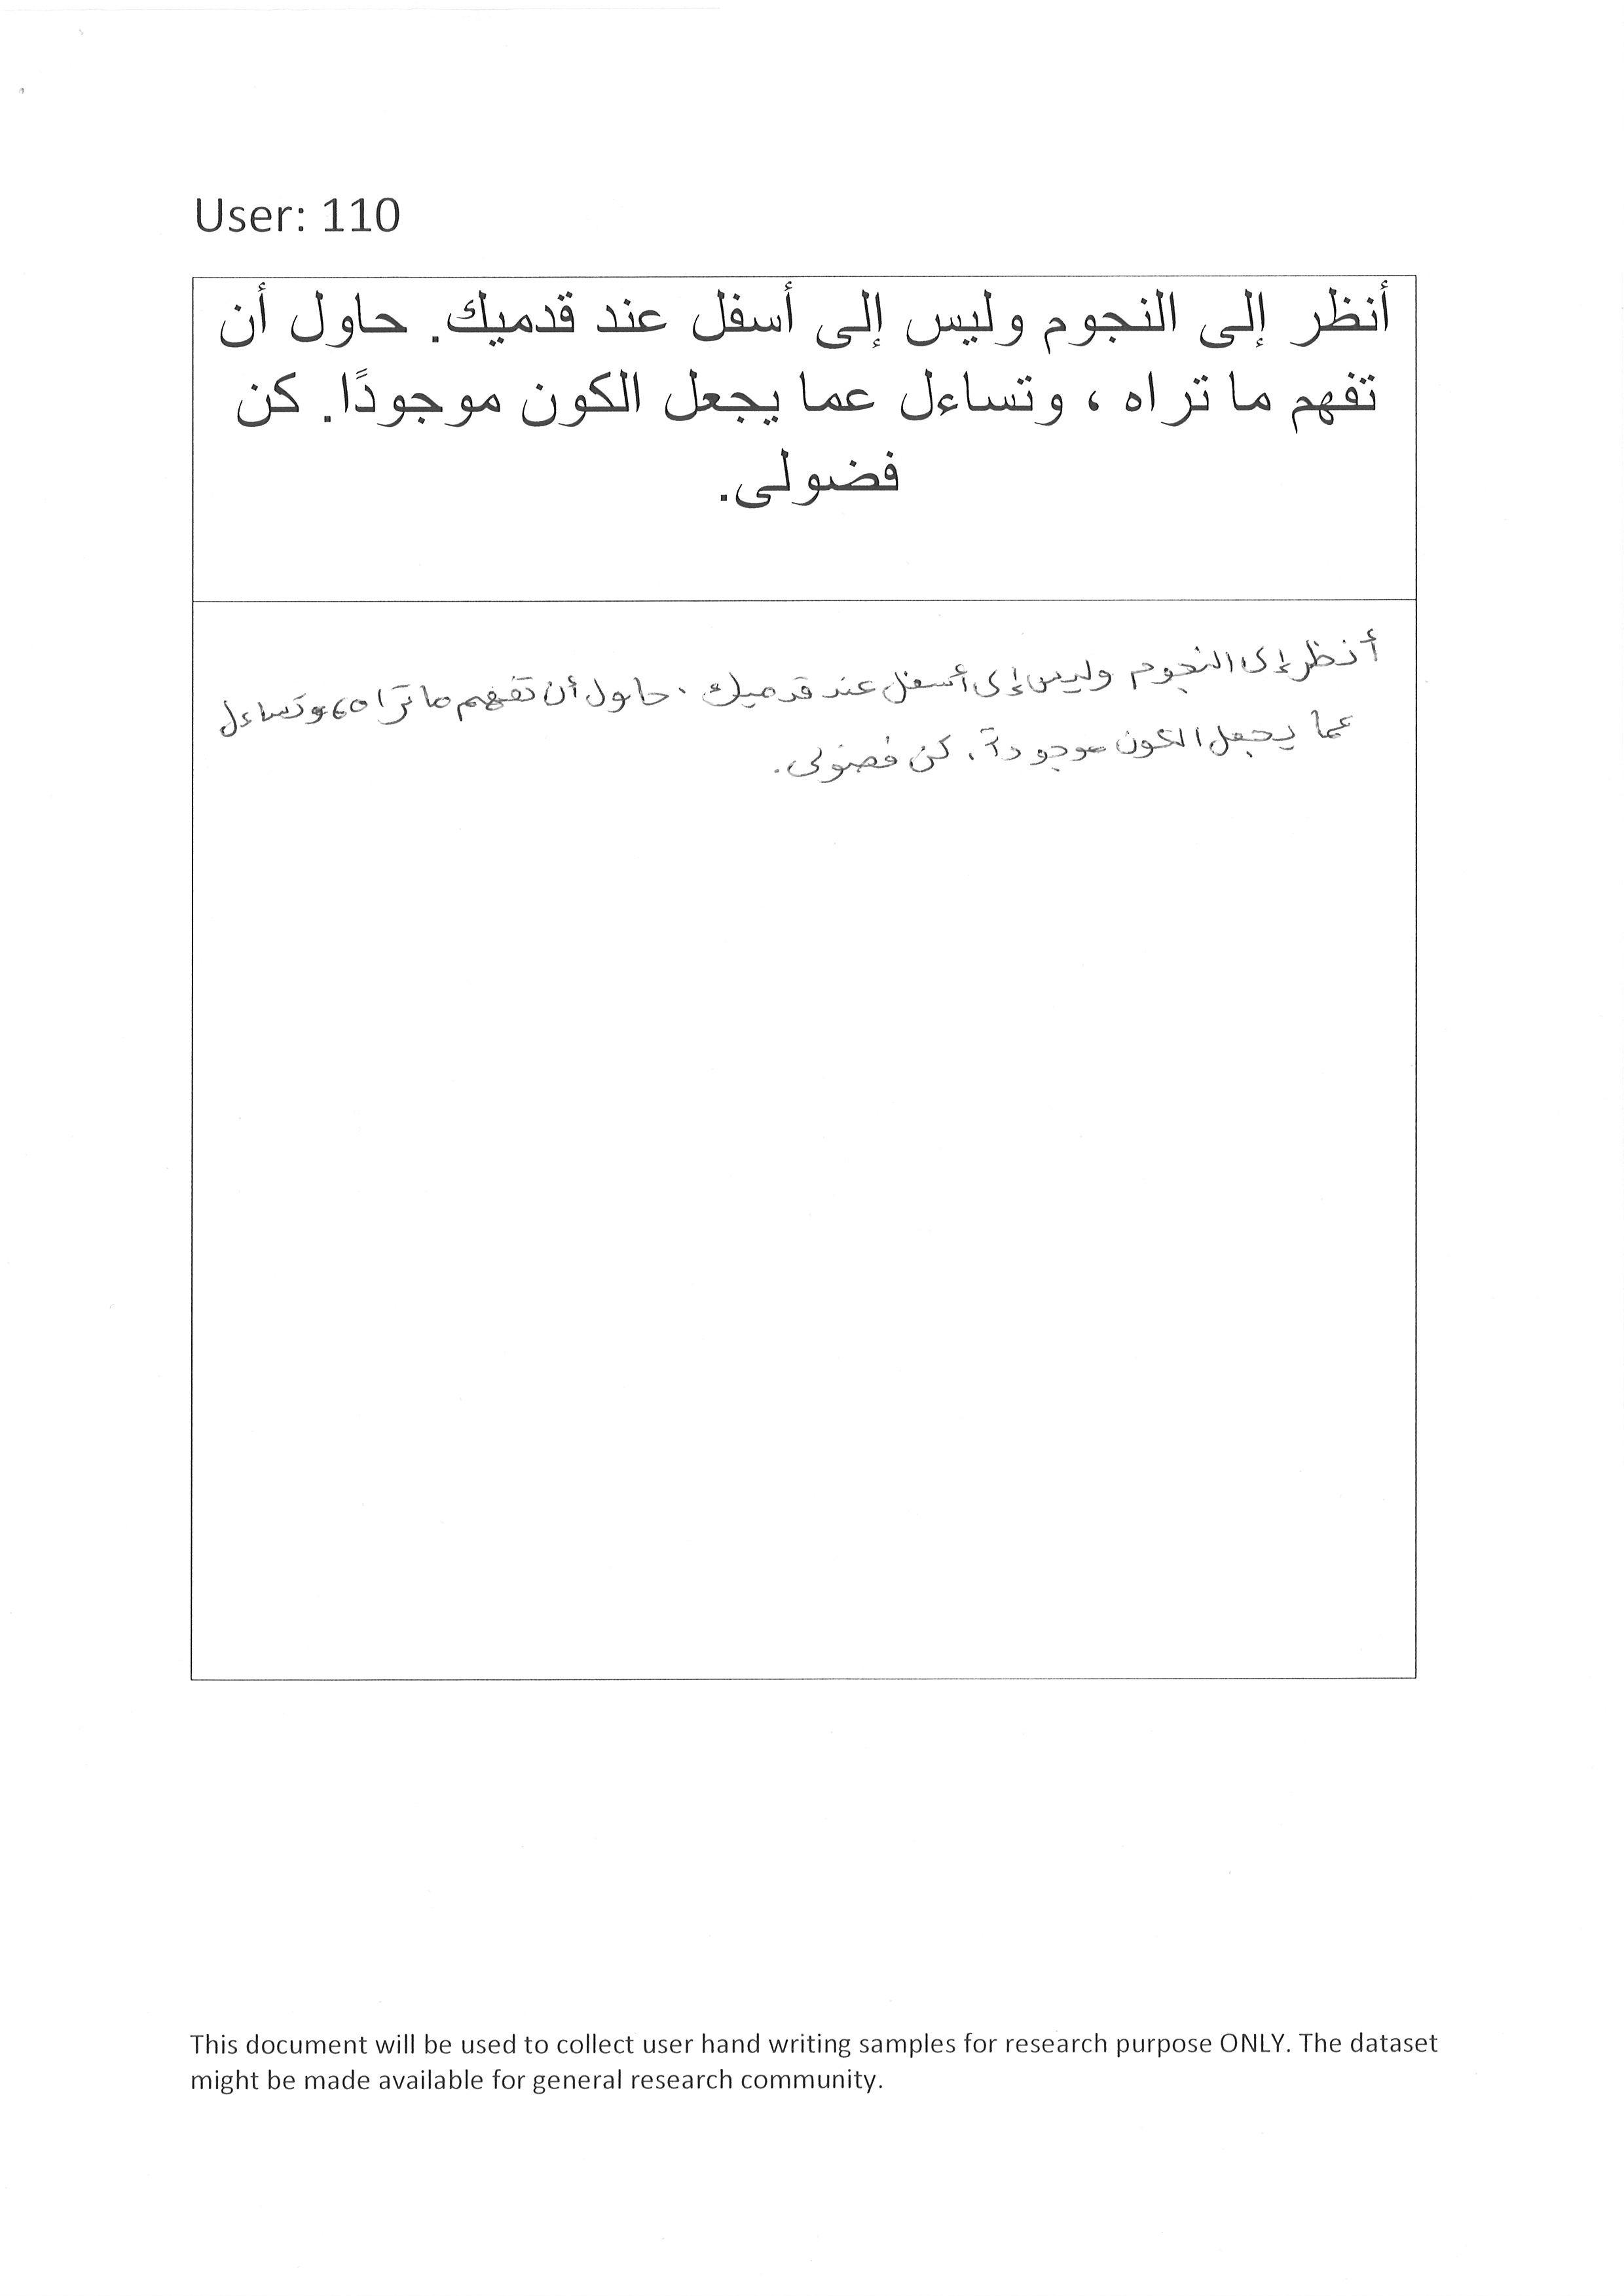 User: 110
أنظر إلى النجوم وليس إلى أسفل عند قدميك. حاول أن
تفهم ما تراه ، وتساءل عما يجعل الكون موجودًا. كن
فضولى.
أنظر إلى النجوم وليس إلى أسفل عند قدميك . حاول أن تفهم ما تراه ، وتساءل
عما يجعل الكون موجوداً . كن فضولى .
This document will be used to collect user hand writing samples for research purpose ONLY. The dataset
might be made available for general research community.